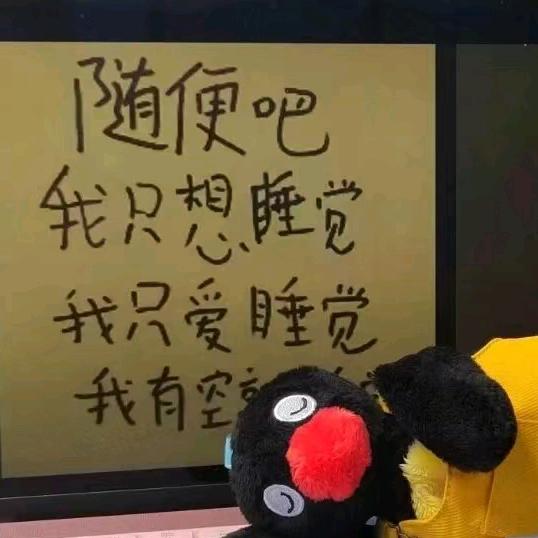 随便吧
我只想睡觉
我只爱睡觉
我有空